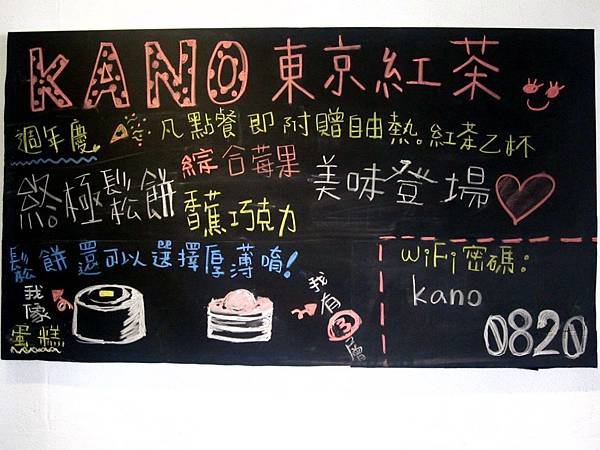 KANO東京紅茶
週年慶 凡點餐即附贈自由熱.紅茶乙杯
終極鬆餅 綜合莓果 美味登場
香蕉巧克力
鬆餅還可以選擇厚薄唷!
我像蛋糕
我有3層
WiFi密碼:
kano
0820